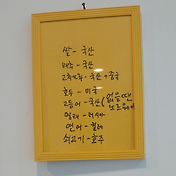 쌀 - 국산
배추 - 국산
고추가루 - 국산 + 중국
호수 - 미국
고등어 - 국산 (없을땐 노르웨이)
명태 - 러시아
연어 - 칠레
쇠고기 - 호주